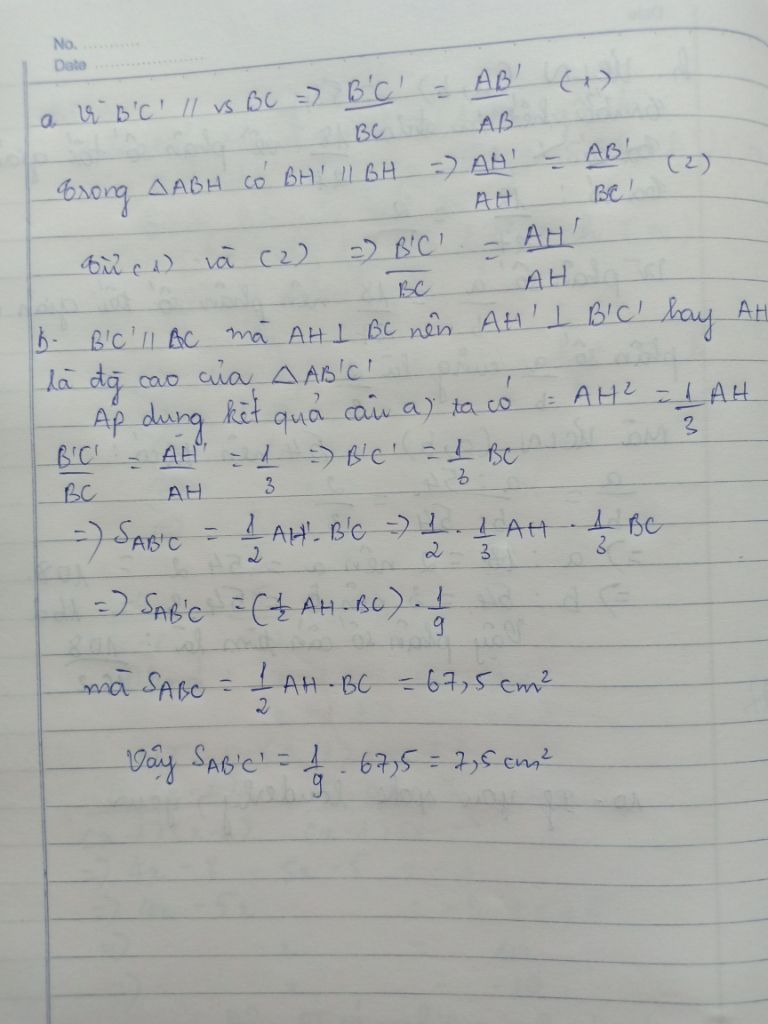 No. ............
Date ........................
a Vì B'C' // vs BC => B'C'/BC = AB'/AB (1)
Trong △ABH có BH' // BH => AH'/AH = AB'/BC' (2)
Từ (1) và (2) => B'C'/BC = AH'/AH
b. B'C' // BC mà AH ⊥ BC nên AH' ⊥ B'C' hay AH
là đg cao của △AB'C'
Ap dung kết quả câu a) ta có = AH² = 1/3 AH
B'C'/BC = AH'/AH = 1/3 => B'C' = 1/3 BC
=> SAB'C = 1/2 AH'. B'C => 1/2 . 1/3 AH . 1/3 BC
=> SAB'C = (1/2 AH . BC) . 1/9
mà SABC = 1/2 AH . BC = 67,5 cm²
Vậy SAB'C' = 1/9 . 67,5 = 7,5 cm²